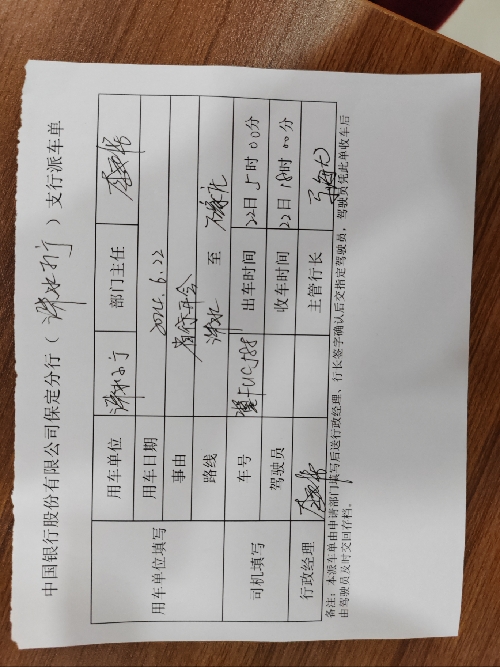 中国银行股份有限公司保定分行（涞水支行）支行派车单
用车单位填写 用车单位 涞水支行 部门主任
用车日期 2024.6.22
事由 省行开会
路线 涞水 至 石家庄
司机填写 车号 出车时间 22日5时00分
驾驶员 收车时间 22日18时00分
行政经理 主管行长
备注：本派车单由申请部门填写后送行政经理、行长签字确认后交指定驾驶员，驾驶员凭此单收车后
由驾驶员及时交回存档。